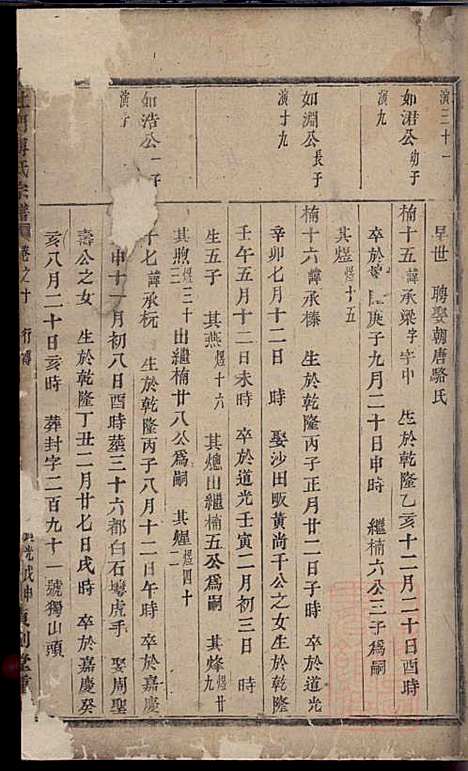 演三十一
早世 聘娶朝唐駱氏
如涒公幼子
演九
楠十五諱承梁字字中 生於乾隆乙亥十二月二十日酉時
卒於 庚子九月二十日申時 繼楠六公三子爲嗣
其煃煜十五
如淵公長子
演十九
楠十六諱承榛 生於乾隆丙子正月廿二日子時 卒於道光
辛卯七月十二日 時 娶沙田畈黃尚千公之女生於乾隆
壬午五月十二日未時 卒於道光壬寅二月初三日 時
生五子 其燕煜十六 其熜出繼楠五公爲嗣 其烽煜廿九
其煦煜三十三出繼楠廿八公爲嗣 其煋煜四十二
如浩公一子
演
十七諱承杬 生於乾隆丙子八月十二日午時 卒於嘉慶
申十一月初八日酉時葬三十六都白石塢虎手 娶周聖
壽公之女 生於乾隆丁丑二月廿七日戌時 卒於嘉慶癸
亥八月二十日亥時 葬封字二百九十一號獨山頭
傅氏宗譜 卷之十 行傳 光緒戊申 貞利堂